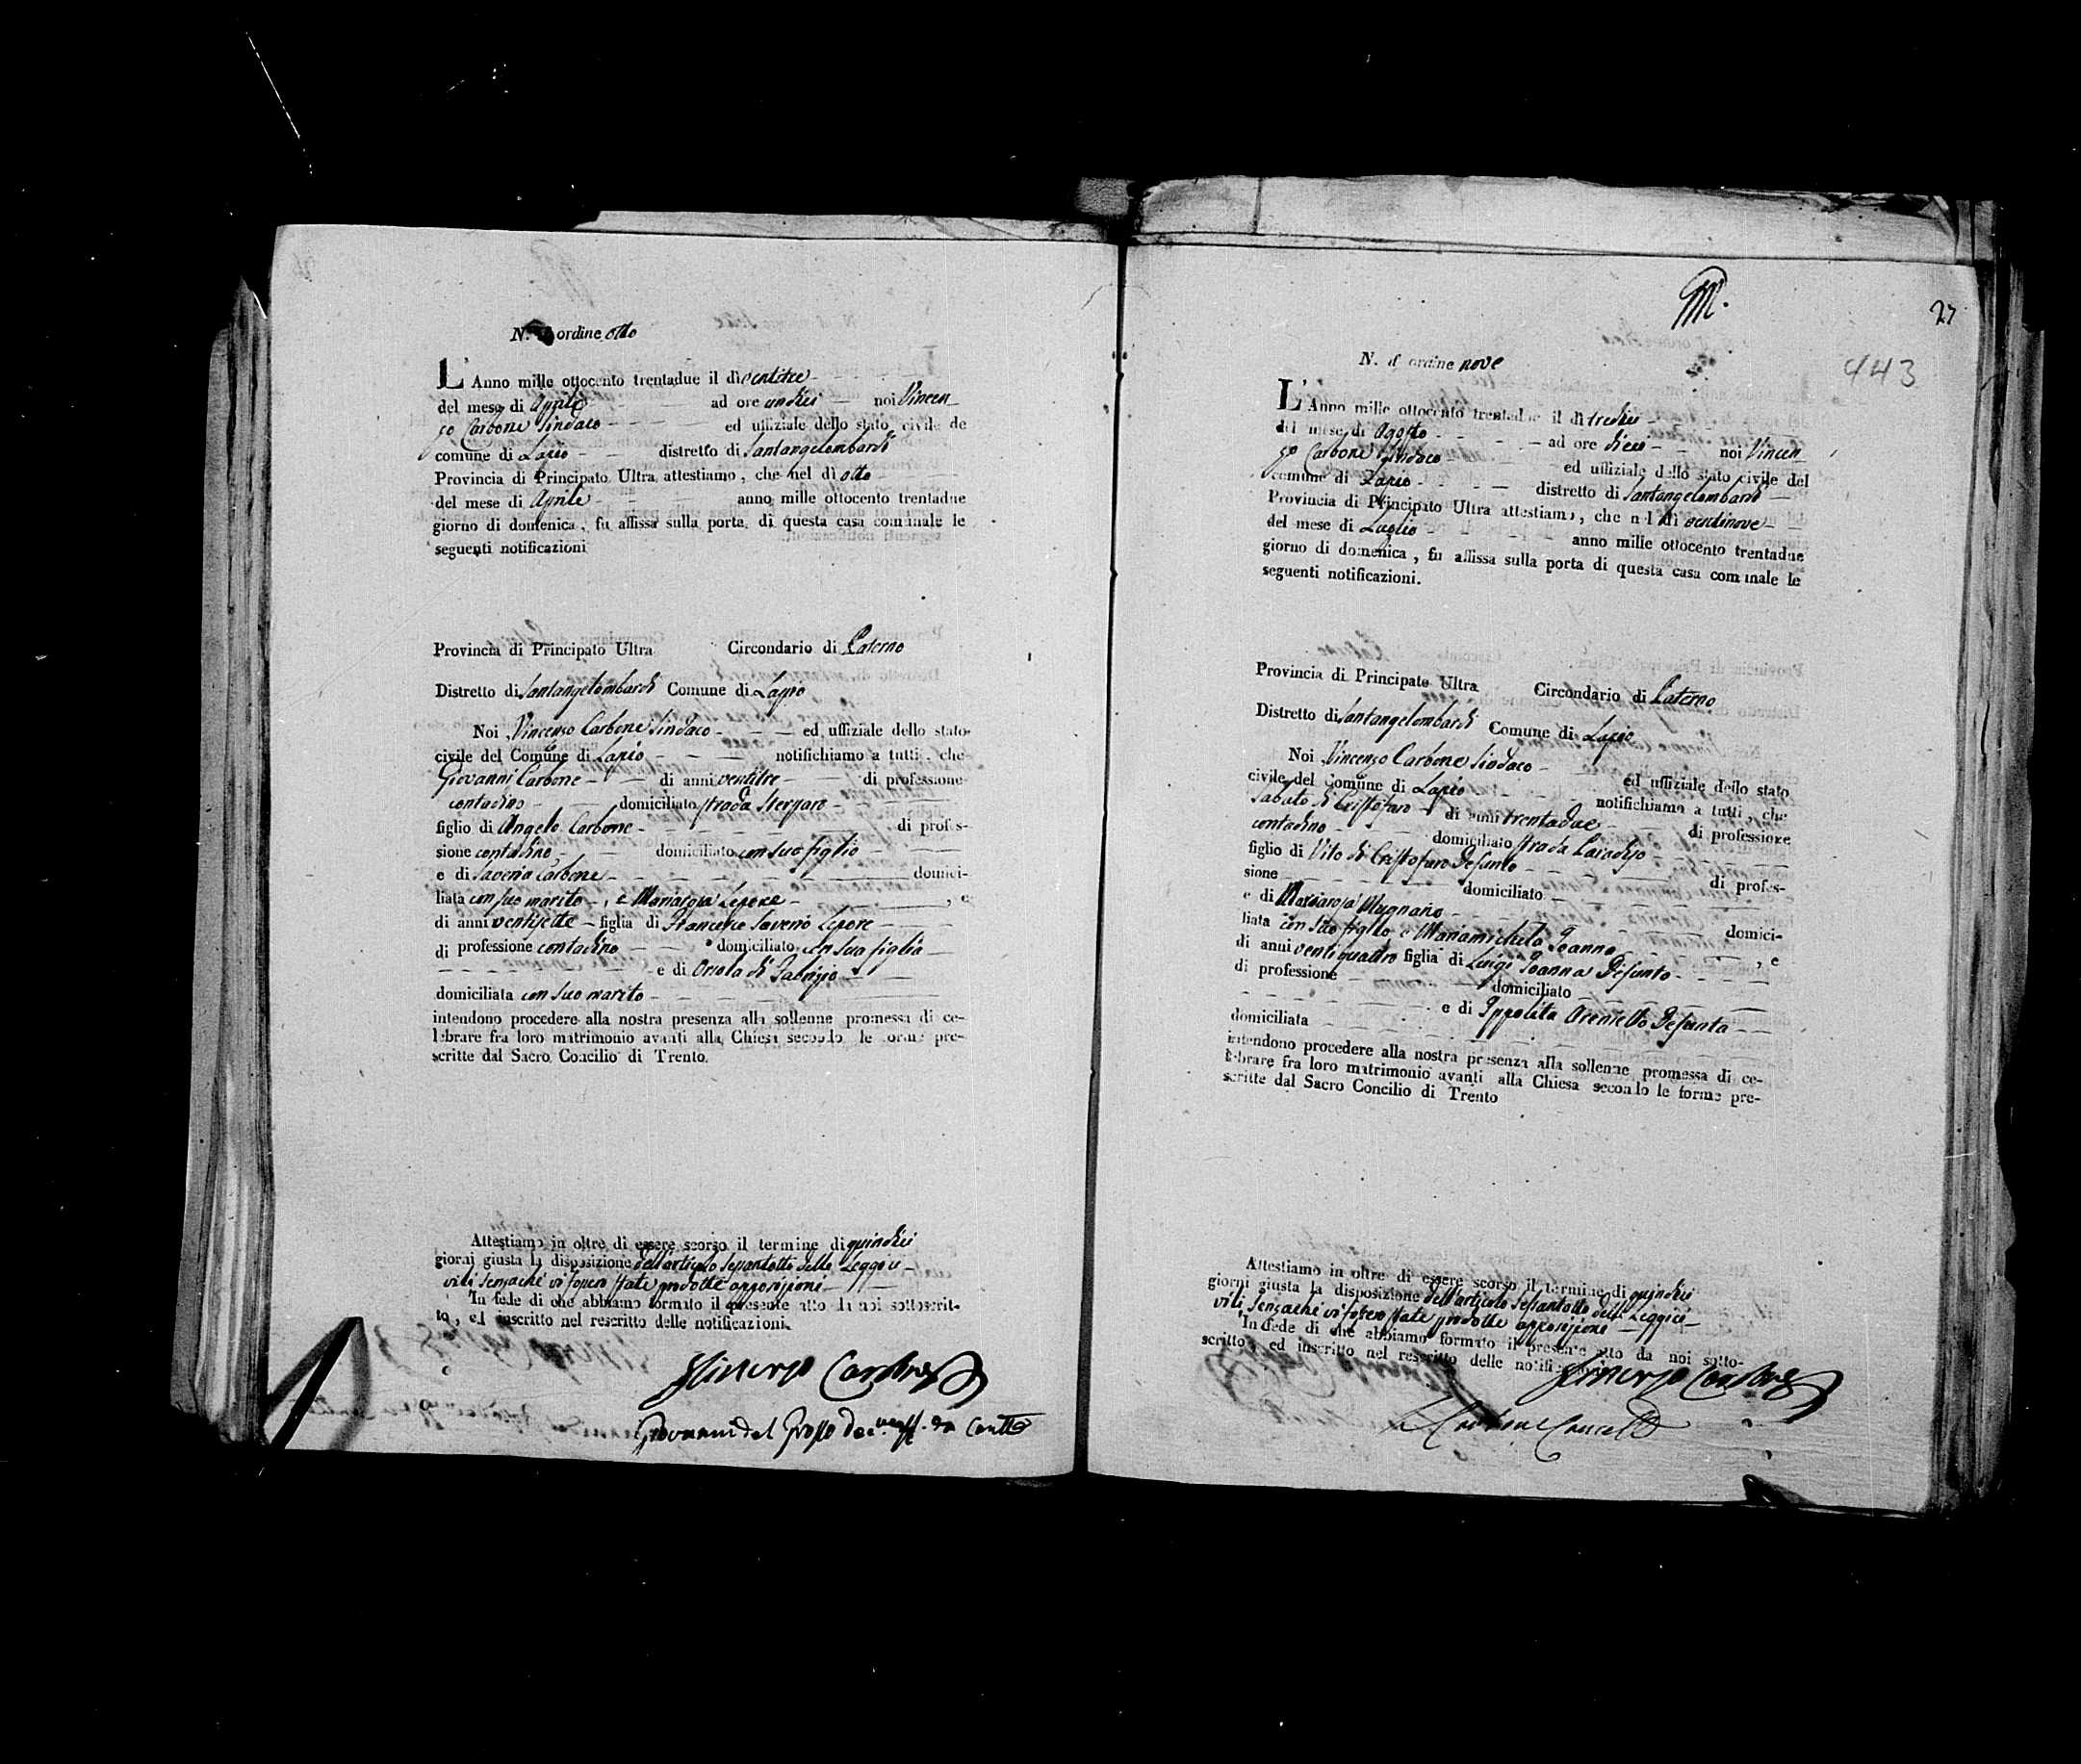 N. ordine otto
L'Anno mille ottocento trentadue il dì ventitre
del mese di Aprile ad ore undici noi Vincen
zo Carbone Sindaco ed uffiziale dello stato civile de
comune di Lapio distretto di Santangelombardi
Provincia di Principato Ultra attestiamo, che nel dì otto
del mese di Aprile anno mille ottocento trentadue
giorno di domenica, fu affissa sulla porta di questa casa comunale le
seguenti notificazioni
Provincia di Principato Ultra Circondario di Paterno
Distretto di Santangelombardi Comune di Lapio
Noi Vincenzo Carbone Sindaco ed uffiziale dello stato
civile del Comune di Lapio notifichiamo a tutti, che
Giovanni Carbone di anni ventitre di professione
contadino domiciliato strada
figlio di Angelo Carbone di profes-
sione contadino domiciliato con suo figlio
e di Saveria Carbone domici-
liata con suo marito, e Mariarosa Lepore, e
di anni ventisette figlia di Francesco Saverio Lepore
di professione contadino domiciliato con sua figlia
e di Orsola di Fabrizio
domiciliata con suo marito
intendono procedere alla nostra presenza alla sollenne promessa di ce-
lebrare fra loro matrimonio avanti alla Chiesa secondo le forme pre-
scritte dal Sacro Concilio di Trento.
Attestiamo in oltre di essere scorso il termine di quindici
giorni giusta la disposizione dell'articolo sessantotto delle Leggi ci
vili senzache vi fossero state prodotte opposizioni
In fede di che abbiamo formato il presente atto da noi sottoscrit-
to, ed inscritto nel rescritto delle notificazioni.
Vincenzo Carbone
Giovanni del Grosso
M.
27
443
N. d' ordine nove
L'Anno mille ottocento trentadue il dì tredici
del mese di Agosto ad ore dieci noi Vincen
zo Carbone Sindaco ed uffiziale dello stato civile del
comune di Lapio distretto di Santangelombardi
Provincia di Principato Ultra attestiamo, che nel dì ventinove
del mese di Luglio anno mille ottocento trentadue
giorno di domenica, fu affissa sulla porta di questa casa comunale le
seguenti notificazioni.
Provincia di Principato Ultra Circondario di Paterno
Distretto di Santangelombardi Comune di Lapio
Noi Vincenzo Carbone Sindaco ed uffiziale dello stato
civile del Comune di Lapio notifichiamo a tutti, che
Sabato di Cristofaro di anni trentadue di professione
contadino domiciliato strada Paradiso
figlio di Vito di Cristofaro Defunto di profes-
sione domiciliato
e di Mariarosa Mugnano domici-
liata con suo figlio, e Mariamichela Joanna, e
di anni ventiquattro figlia di Luigi Joanna Defunto
di professione domiciliato
e di Ippolita Oreniello Defunta
domiciliata
intendono procedere alla nostra presenza alla sollenne promessa di ce-
lebrare fra loro matrimonio avanti alla Chiesa secondo le forme pre-
scritte dal Sacro Concilio di Trento
Attestiamo in oltre di essere scorso il termine di quindici
giorni giusta la disposizione dell'articolo sessantotto delle Leggi ci
vili senzache vi fossero state prodotte opposizione
In fede di che abbiamo formato il presente atto da noi sotto-
scritto, ed inscritto nel rescritto delle
Vincenzo Carbone